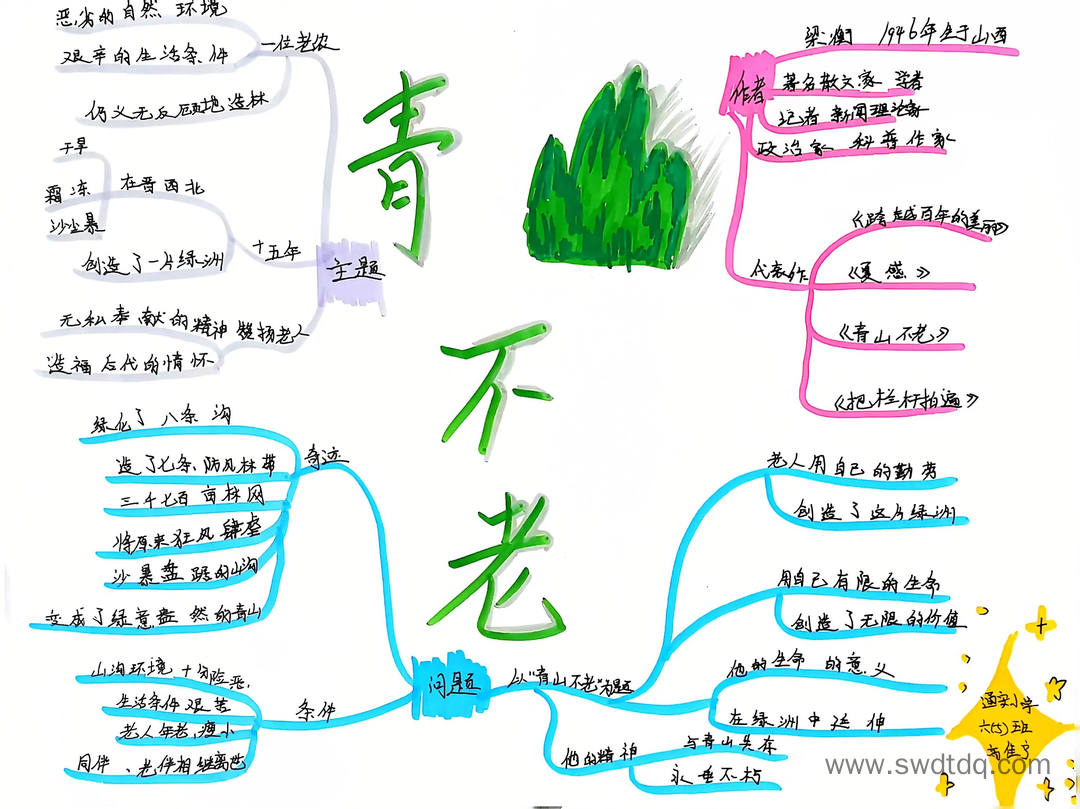 青
不
老
作者
梁衡 1946年生于山西
著名散文家 学者
记者 新闻理论家
政治家 科普作家
代表作
《跨越百年的美丽》
《夏感》
《青山不老》
《把栏杆拍遍》
主题
一位老农
恶劣的自然环境
艰辛的生活条件
仍义无反顾地造林
十五年
在晋西北
干旱
霜冻
沙尘暴
创造了一片绿洲
赞扬老人
无私奉献的精神
造福后代的情怀
问题
奇迹
绿化了八条沟
造了七条防风林带
三千七百亩林网
将原来狂风肆虐
沙暴盘踞的山沟
变成了绿意盎然的青山
条件
山沟环境十分险恶
生活条件艰苦
老人年老,瘦小
同伴、老伴相继离世
以“青山不老”为题
老人用自己的勤劳
创造了这片绿洲
用自己有限的生命
创造了无限的价值
他的生命的意义
在绿洲中延伸
他的精神
与青山共存
永垂不朽
通安小学
六(5)班
www.swdtdq.com